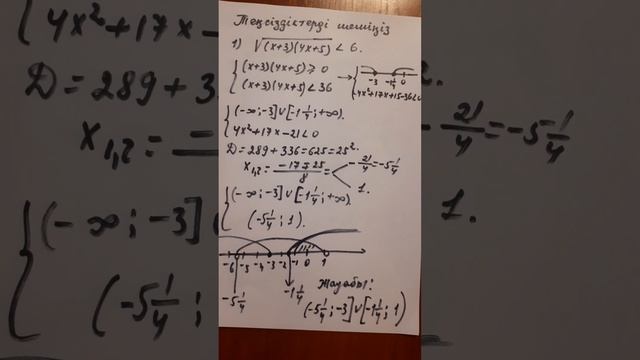 Теңсіздіктерді шешіңіз
1) √(x+3)(4x+5) < 6.
{ (x+3)(4x+5) ⩾ 0
(x+3)(4x+5) < 36
→ { -3 -1 1/4 0
4x²+17x+15-36<0
{ (-∞;-3]∪[-1 1/4;+∞).
4x²+17x-21<0
D=289+336=625=25².
x₁,₂ = (-17±25)/8 = -21/4=-5 1/4
1.
{ (-∞;-3]∪[-1 1/4;+∞).
(-5 1/4; 1).
-6 -5 -4 -3 -2 -1 0 1
-5 1/4 -1 1/4
Жауабы:
(-5 1/4;-3]∪[-1 1/4; 1)
{ 4x²+17x-
D=289+33
x₁,₂ =
{ (-∞;-3]
(-5 1/4;
-21/4=-5 1/4
1.